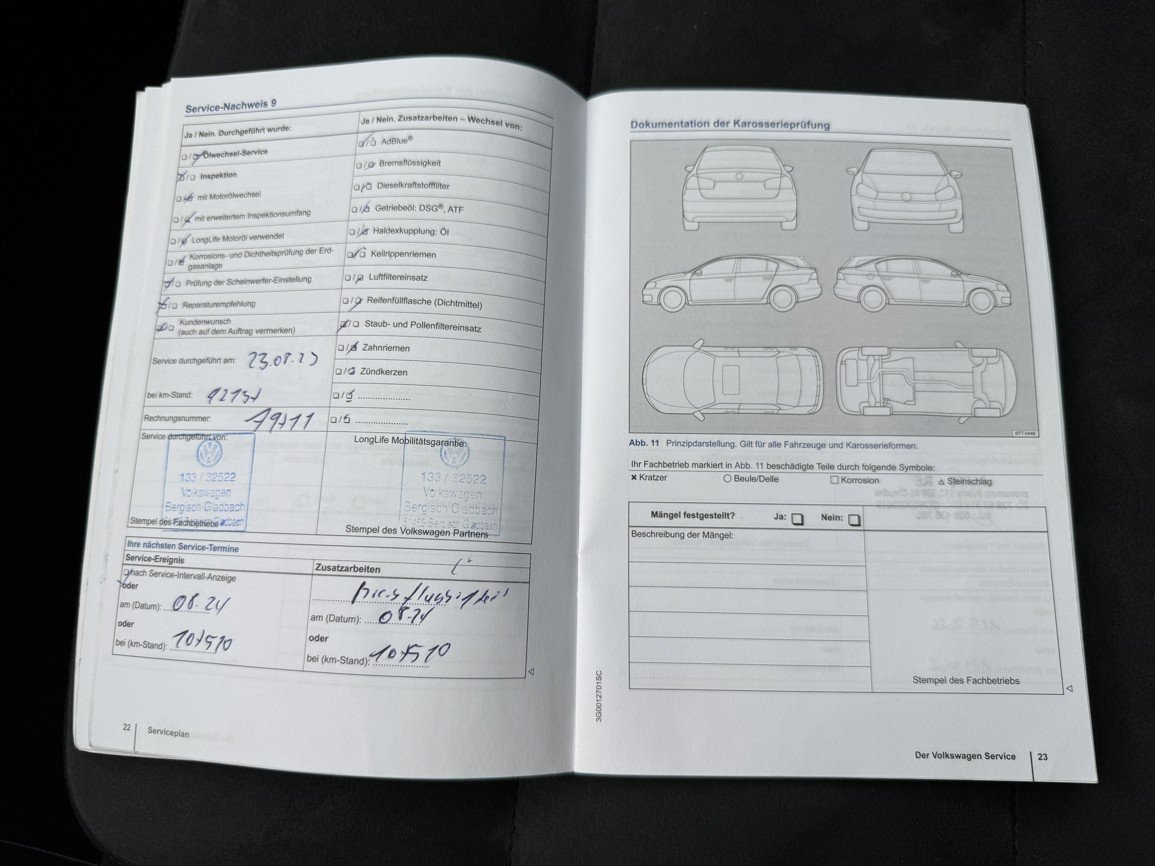 Service-Nachweis 9
Ja / Nein. Durchgeführt wurde:
Ölwechsel-Service
Inspektion
mit Motorölwechsel
mit erweitertem Inspektionsumfang
LongLife Motoröl verwendet
Korrosions- und Dichtheitsprüfung der Erd-
gasanlage
Prüfung der Scheinwerfer-Einstellung
Reparaturempfehlung
Kundenwunsch
(auch auf dem Auftrag vermerken)
Service durchgeführt am: 23.08.23
bei km-Stand:
Rechnungsnummer:
Service durchgeführt von:
133 / 32522
Volkswagen
Bergisch Gladbach
Stempel des Fachbetriebs
Ja / Nein. Zusatzarbeiten – Wechsel von:
AdBlue®
Bremsflüssigkeit
Dieselkraftstofffilter
Getriebeöl: DSG®, ATF
Haldexkupplung: Öl
Keilrippenriemen
Luftfiltereinsatz
Reifenfüllflasche (Dichtmittel)
Staub- und Pollenfiltereinsatz
Zahnriemen
Zündkerzen
LongLife Mobilitätsgarantie:
133 / 32522
Volkswagen
Bergisch Gladbach
Stempel des Volkswagen Partners
Ihre nächsten Service-Termine
Service-Ereignis
nach Service-Intervall-Anzeige
oder
am (Datum): 08.24
oder
bei (km-Stand): 107510
Zusatzarbeiten
Bremsflüssigkeit
am (Datum): 08.24
oder
bei (km-Stand): 107510
22
Serviceplan
Dokumentation der Karosserieprüfung
Abb. 11 Prinzipdarstellung. Gilt für alle Fahrzeuge und Karosserieformen.
Ihr Fachbetrieb markiert in Abb. 11 beschädigte Teile durch folgende Symbole:
× Kratzer ○ Beule/Delle □ Korrosion △ Steinschlag
Mängel festgestellt? Ja: Nein:
Beschreibung der Mängel:
Stempel des Fachbetriebs
3G0012701SC
Der Volkswagen Service 23